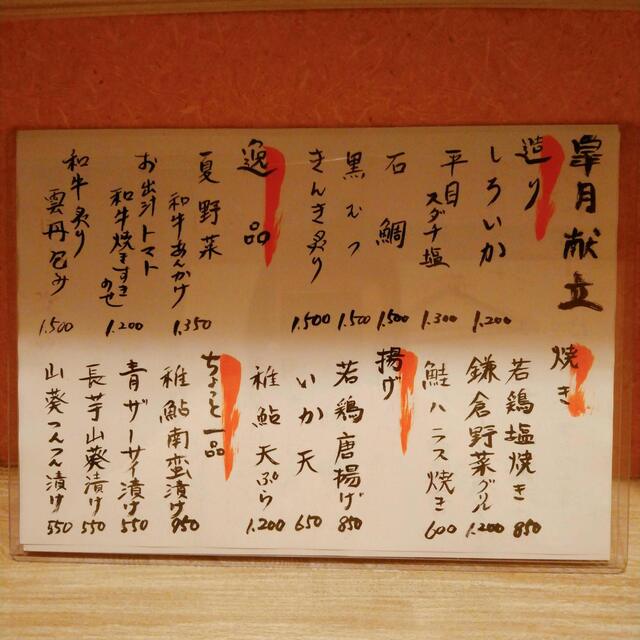 皐月献立
造り
しろいか
1.200
平目
スダチ塩
1.300
石鯛
1.500
黒むつ
1.500
きんき炙り
1.500
逸品
夏野菜
和牛あんかけ
1.350
お出汁トマト
和牛焼きすき
のせ
1.200
和牛炙り
雲丹包み
1.500
焼き
若鶏塩焼き
850
鎌倉野菜グリル
1.200
鮭ハラス焼き
600
揚げ
若鶏唐揚げ
850
いか天
650
稚鮎天ぷら
1.200
ちょこっと一品
稚鮎南蛮漬け
950
青ザーサイ漬け
550
長芋山葵漬け
550
山葵つんつん漬け
550